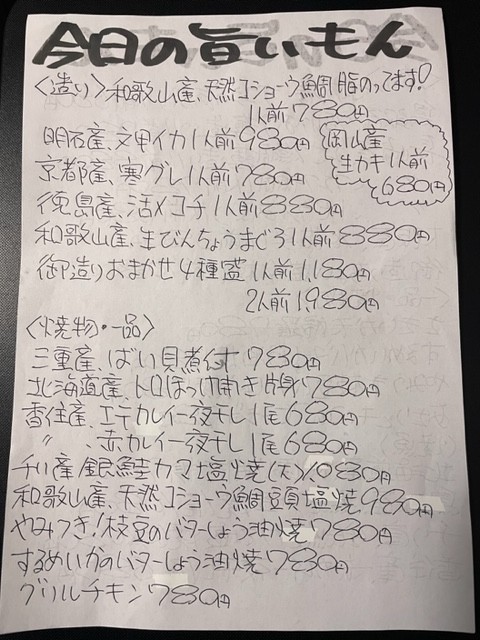 今日の旨いもん
〈造り〉和歌山産、天然コショーウ鯛脂のってます!
1人前780円
明石産、文甲イカ1人前980円
岡山産
生カキ1人前
680円
京都産、寒グレ1人前780円
徳島産、活〆コチ1人前880円
和歌山産、生びんちょうまぐろ1人前880円
御造りおまかせ4種盛1人前1,180円
2人前1,980円
〈焼物・一品〉
三重産、ばい貝煮付780円
北海道産、トロほっけ開き片身780円
香住産、エテカレイ一夜干し1尾680円
〃、赤カレイ一夜干し1尾680円
チリ産銀鮭カマ塩焼(大)1080円
和歌山産、天然コショーウ鯛頭塩焼980円
やみつき!枝豆のバターしょう油焼780円
するめいかのバターしょう油焼780円
グリルチキン780円